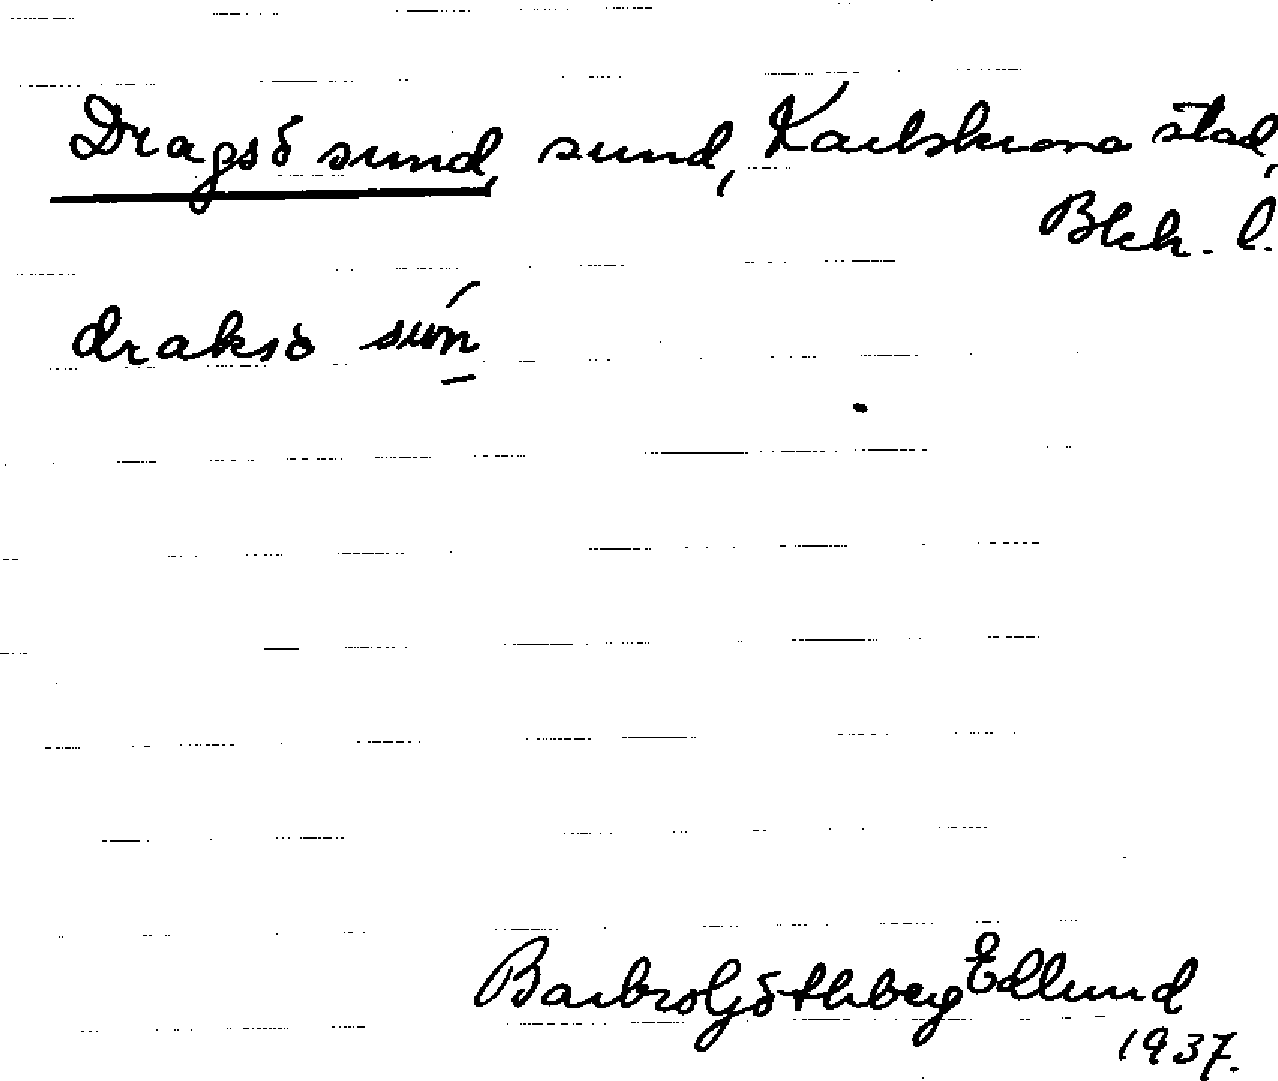 Dragsö sund, sund, Karlskrona stad,
Blek. l.
draksö suń̲
Barbro Göthberg Edlund
1937.